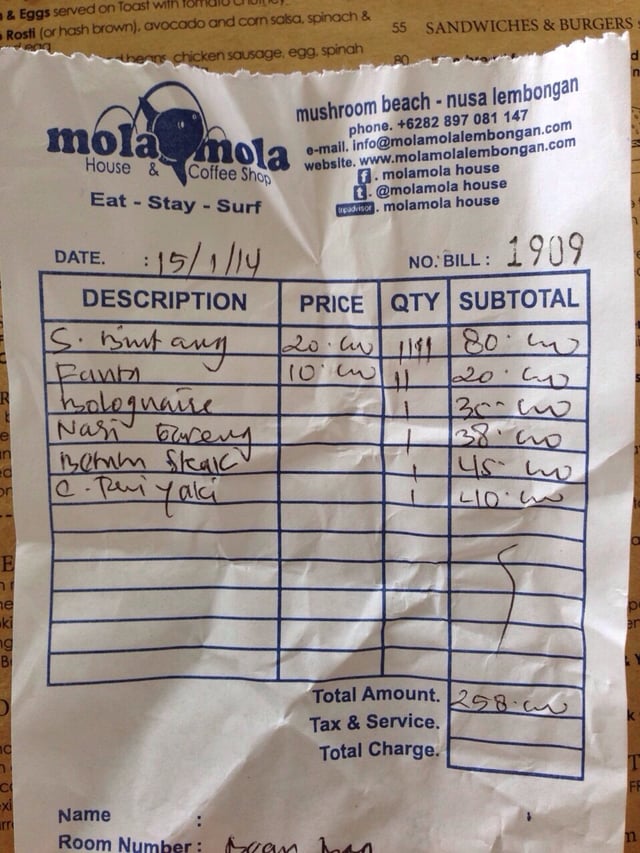 & Eggs served on Toast with tomato chutney.
Rosti (or hash brown), avocado and corn salsa, spinach &
egg
beans, chicken sausage, egg, spinah
55 SANDWICHES & BURGERS
80
mola mola
House & Coffee Shop
Eat - Stay - Surf
mushroom beach - nusa lembongan
phone. +6282 897 081 147
e-mail. info@molamolalembongan.com
website. www.molamolalembongan.com
f . molamola house
t . @molamola house
tripadvisor . molamola house
DATE. : 15/1/14 NO. BILL : 1909
DESCRIPTION PRICE QTY SUBTOTAL
S. Bintang 20.000 |||| 80.000
Fanta 10.000 || 20.000
Bolognaise | 35.000
Nasi Goreng | 38.000
Steak | 45.000
C. Teriyaki | 40.000
Total Amount. 258.000
Tax & Service.
Total Charge.
Name :
Room Number :